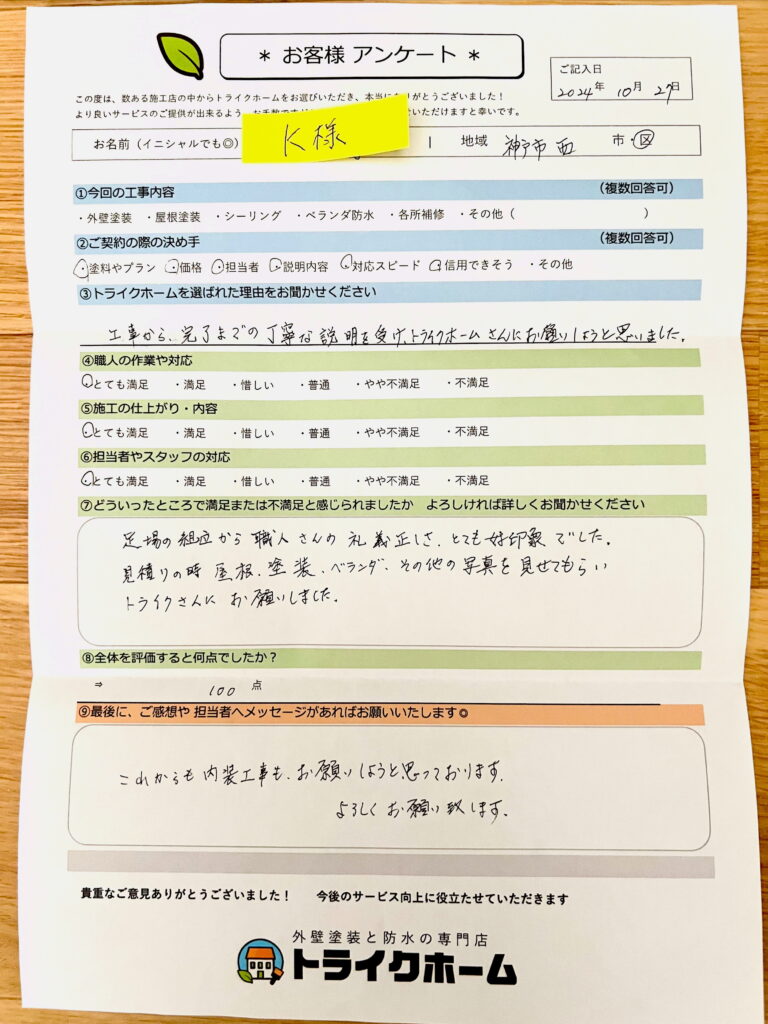 * お客様 アンケート *
ご記入日
2024年 10月 27日
この度は、数ある施工店の中からトライクホームをお選びいただき、本当にありがとうございました！
より良いサービスのご提供が出来るよう、お手数ですが いただけますと幸いです。
お名前（イニシャルでも◎） K様 地域 神戸市 西 市・区
①今回の工事内容 （複数回答可）
・外壁塗装 ・屋根塗装 ・シーリング ・ベランダ防水 ・各所補修 ・その他（ ）
②ご契約の際の決め手 （複数回答可）
・塗料やプラン ・価格 ・担当者 ・説明内容 ・対応スピード ・信用できそう ・その他
③トライクホームを選ばれた理由をお聞かせください
工事から、完了までの丁寧な説明を受け、トライクホームさんにお願いしようと思いました。
④職人の作業や対応
・とても満足 ・満足 ・惜しい ・普通 ・やや不満足 ・不満足
⑤施工の仕上がり・内容
・とても満足 ・満足 ・惜しい ・普通 ・やや不満足 ・不満足
⑥担当者やスタッフの対応
・とても満足 ・満足 ・惜しい ・普通 ・やや不満足 ・不満足
⑦どういったところで満足または不満足と感じられましたか よろしければ詳しくお聞かせください
足場の組立から職人さんの礼義正しさ、とても好印象でした。
見積りの時 屋根、塗装、ベランダ、その他の写真を見せてもらい
トライクさんにお願いしました。
⑧全体を評価すると何点でしたか？
⇒ 100 点
⑨最後に、ご感想や 担当者へメッセージがあればお願いいたします◎
これからも内装工事も、お願いしようと思っております。
よろしくお願い致します。
貴重なご意見ありがとうございました！ 今後のサービス向上に役立たせていただきます
外壁塗装と防水の専門店
トライクホーム